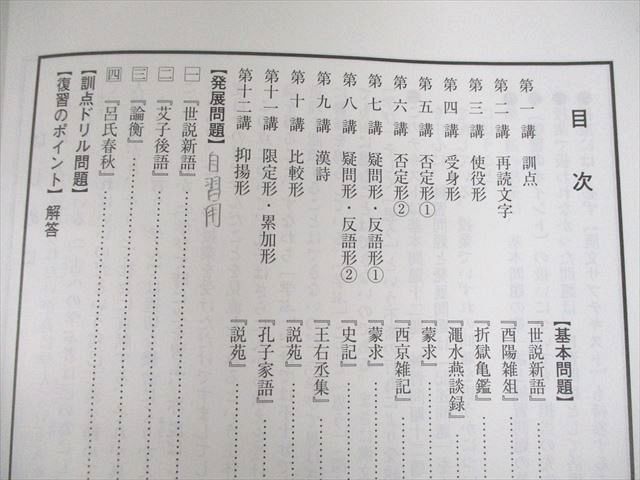 目次
【基本問題】
第一講 訓点 『世説新語』
第二講 再読文字 『酉陽雑俎』
第三講 使役形 『折獄亀鑑』
第四講 受身形 『澠水燕談録』
第五講 否定形① 『蒙求』
第六講 否定形② 『西京雑記』
第七講 疑問形・反語形① 『蒙求』
第八講 疑問形・反語形② 『史記』
第九講 漢詩 『王右丞集』
第十講 比較形 『説苑』
第十一講 限定形・累加形 『孔子家語』
第十二講 抑揚形 『説苑』
【発展問題】自習用
一 『世説新語』
二 『艾子後語』
三 『論衡』
四 『呂氏春秋』
【訓点ドリル問題】
【復習のポイント】解答